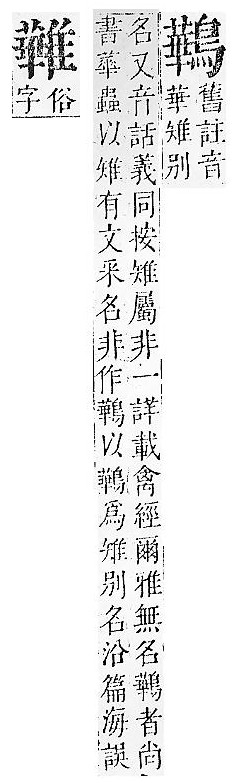 鷨
舊註音
華雉别
名又音話義同按雉屬非一詳載禽經爾雅無名鷨者尚
書華蟲以雉有文采名非作鷨以鷨爲雉别名沿篇海誤
䨼
俗
字